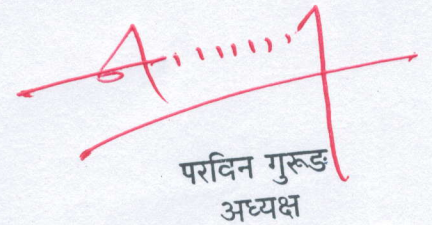 परविन गुरूङ
अध्यक्ष